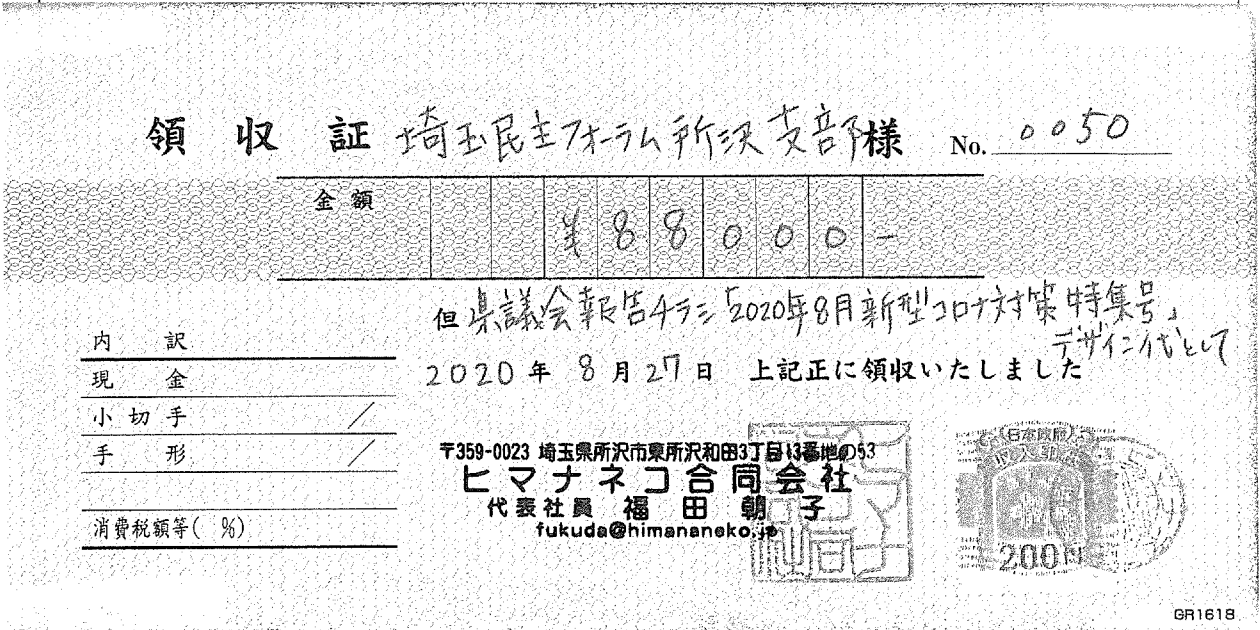 領 収 証 埼玉民主フォーラム所沢支部様 No. 0050
金 額 ¥88000-
但 県議会報告チラシ「2020年8月新型コロナ対策特集号」
デザイン代として
2020年 8月27日 上記正に領収いたしました
内 訳
現 金
小 切 手 /
手 形 /
消費税額等( %)
〒359-0023 埼玉県所沢市東所沢和田3丁目13番地の53
ヒマナネコ合同会社
代表社員 福 田 朝 子
fukuda@himananeko.jp
日本政府
収入印紙
200円
GR1618